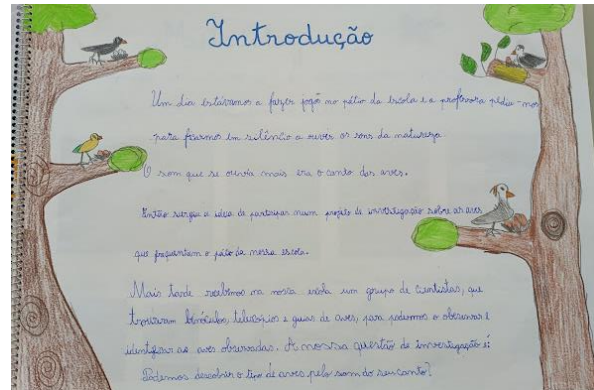 Introdução
Um dia estávamos a fazer jogo no pátio da escola e a professora pediu-nos
para ficarmos em silêncio a ouvir os sons da natureza
O som que se ouvia mais era o canto das aves.
Então surgiu a ideia de participar num projeto de investigação sobre as aves
que frequentam o pátio da nossa escola.
Mais tarde recebemos na nossa escola um grupo de cientistas, que
trouxeram binóculos, telescópios e guias de aves, para podermos o observar e
identificar as aves observadas. A nossa questão de investigação é:
Podemos descobrir o tipo de aves pelo som do seu canto?